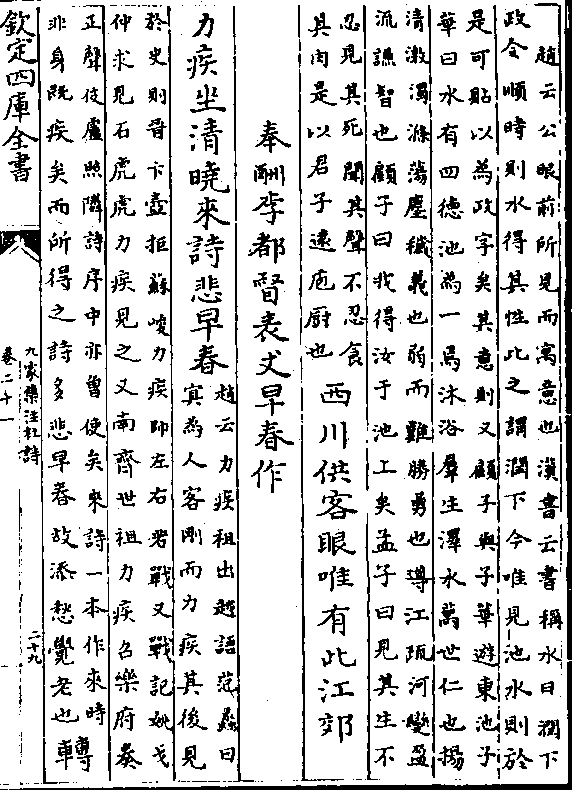 趙云公眼前所見而寓意也漢書云書稱水曰潤下
政令順時則水得其性此之謂潤下今唯見池水則於
是可貼以為政字矣其意則又顧子與子華遊東池子
華曰水有四德池為一焉沐浴羣生澤水萬世仁也揚
清激濁滌蕩塵穢義也弱而難勝勇也導江疏河變盈
流謙智也顧子曰我得汝于池上矣孟子曰見其生不
忍見其死聞其聲不忍食
其肉是以君子遠庖廚也
西川供客眼唯有此江郊
奉酬李都督表丈早春作
力疾坐清曉來詩悲早春
趙云力疾祖出越語范蠡曰
寘為人客剛而力疾其後見
於史則晉卞壼拒蘇峻力疾帥左右苦戰又戰記姚弋
仲求見石虎虎力疾見之又南齊世祖力疾召樂府奏
正聲伎盧照隣詩序中亦曾使矣來詩一本作來時
非身既疾矣而所得之詩多悲早春故添愁覺老也轉
欽定四庫全書
九家集注杜詩
卷二十一
二十九